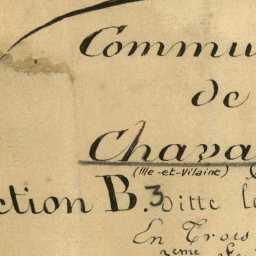 Commu
de
Chava
(Ille-et-Vilaine)
ction B.3 Ditte le
En Trois
2eme